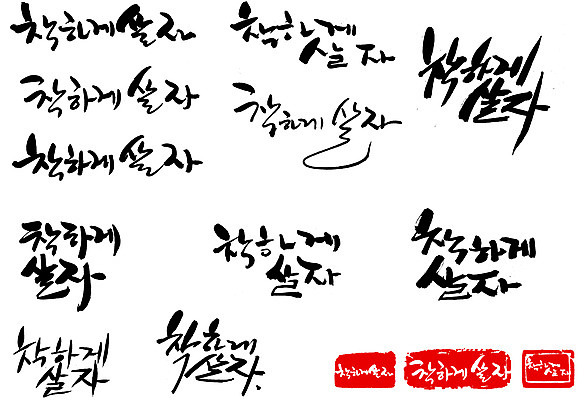 착하게 살자
착하게 살자
착하게 살자
착하게
살자
착하게 살자
착하게
살자
착하게
살자
착하게
살자
착하게
살자
착하게
살자
착하게
살자
착하게 살자
착하게 살자
착하게 살자